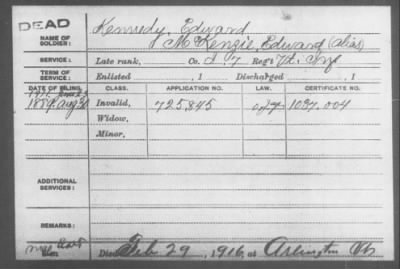 DEAD
NAME OF SOLDIER: Kennedy, Edward
McKenzie, Edward (Alias)
SERVICE: Late rank, Co. D. 7 Reg't Vt. Inf
TERM OF SERVICE: Enlisted , 1 Discharged , 1
DATE OF FILING. CLASS. APPLICATION NO. LAW. CERTIFICATE NO.
1889 Aug 30 Invalid, 725.845 1037.004
Widow,
Minor,
ADDITIONAL SERVICES:
REMARKS:
Died Feb 29, 1916, at Arlington Vt